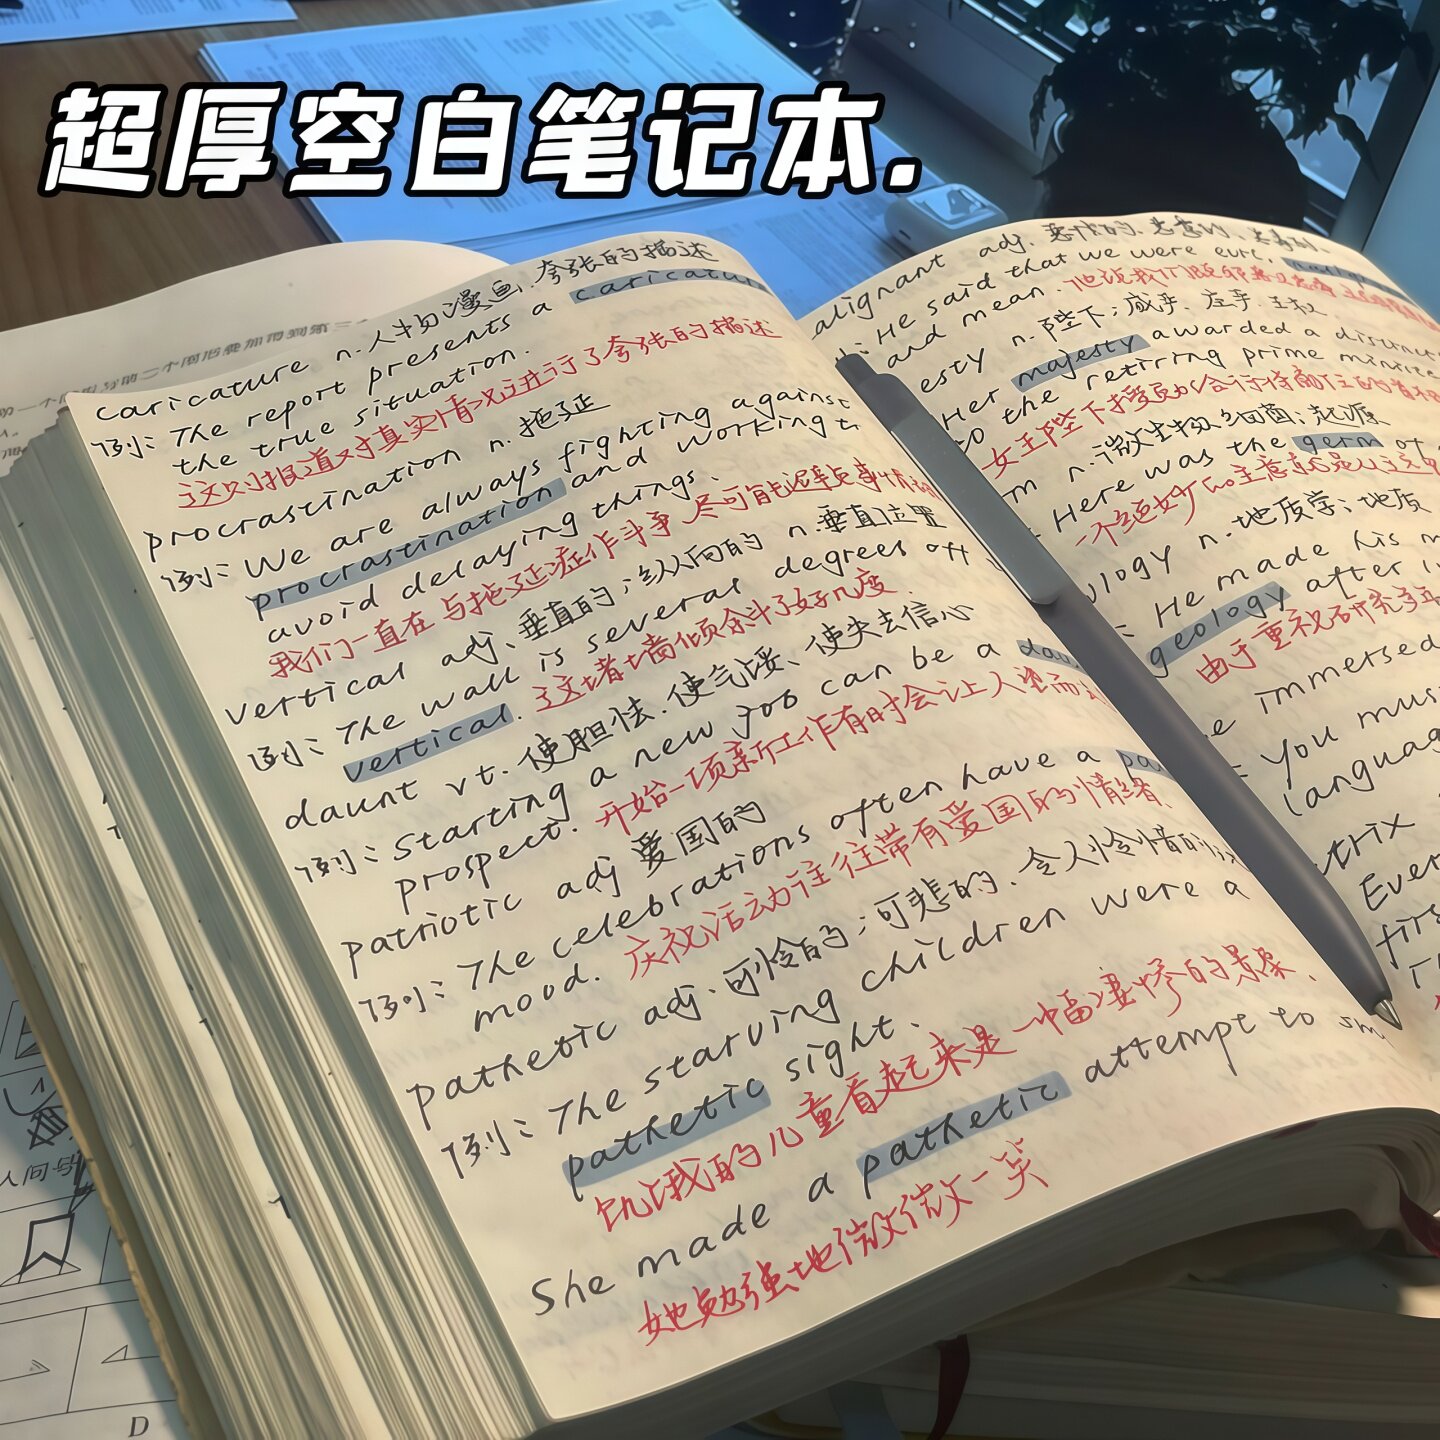 超厚空白笔记本.
caricature n.人物漫画,夸张的描述
例: The report presents a caricature
the true situation.
这则报道对真实情况进行了夸张的描述
procrastination n.拖延
例: We are always fighting against
procrastination and working t
avoid delaying things.
我们一直在与拖延症作斗争 尽可能
vertical adj、垂直的;纵向的 n.垂直位置
例: The wall is several degrees off
vertical. 这堵墙倾斜了好几度
daunt vt.使胆怯.使气馁、使失去信心
例: Starting a new job can be a dau
prospect. 开始一项新工作有时会让人
patriotic adj 爱国的
例: The celebrations often have a pa
mood. 庆祝活动往往带有爱国的情绪.
pathetic adj.可怜的;可悲的.令人怜惜的
例: The starving children were a
pathetic sight.
饥饿的儿童看起来是一幅凄惨的景象.
She made a pathetic attempt to sm
她勉强地微微一笑
alignant adj.
: He said that we were evil,
and mean.
esty n.陛下;威严.庄严.王权
Her majesty awarded a distinct
to the retiring prime minist
女王陛下
m n.微生物细菌;起源
Here was the germ of
一个绝妙的主意
ology n.地质学;地质
: He made his m
geology after
由于重视研究
e immersed
: You mus
languag
trix
Ever
firs
D